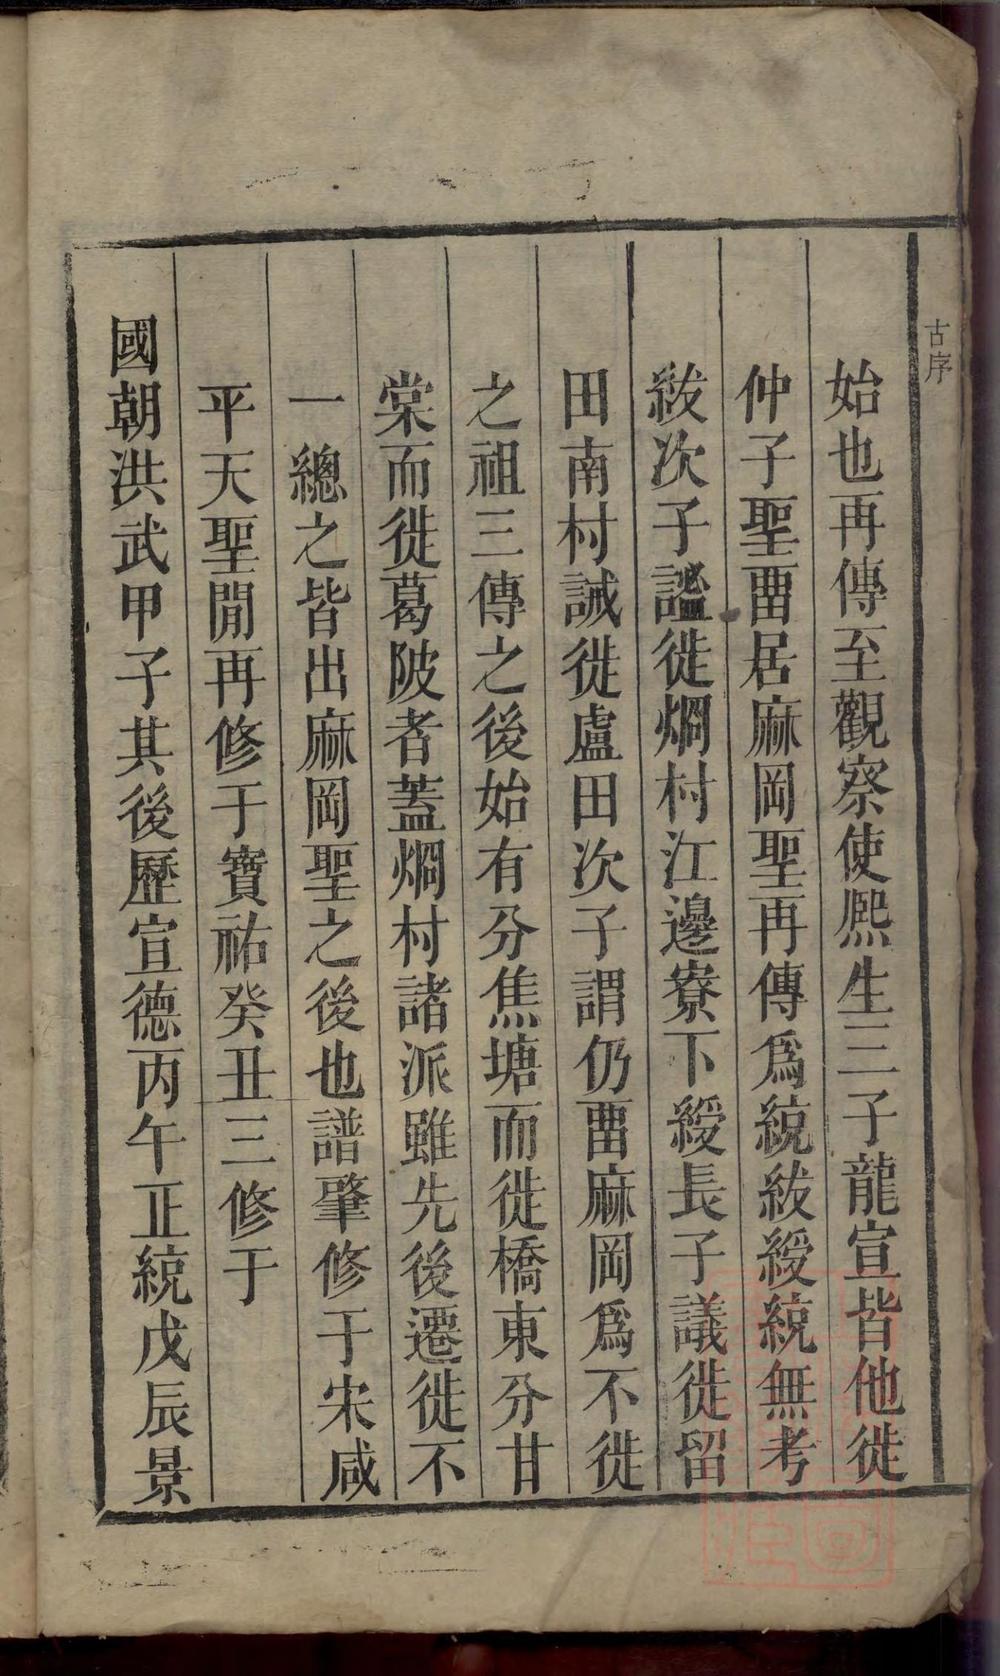 古序
始也再傳至觀察使熈生三子龍宣皆他徙
仲子聖畱居麻岡聖再傳爲統紱綬統無考
紱次子謐徙烱村江邊寮下綬長子議徙留
田南村誠徙盧田次子謂仍畱麻岡爲不徙
之祖三傳之後始有分焦塘而徙橋東分甘
棠而徙葛陂者蓋烱村諸派雖先後遷徙不
一總之皆出麻岡聖之後也譜肇修于宋咸
平天聖閒再修于寶祐癸丑三修于
國朝洪武甲子其後歷宣德丙午正統戊辰景